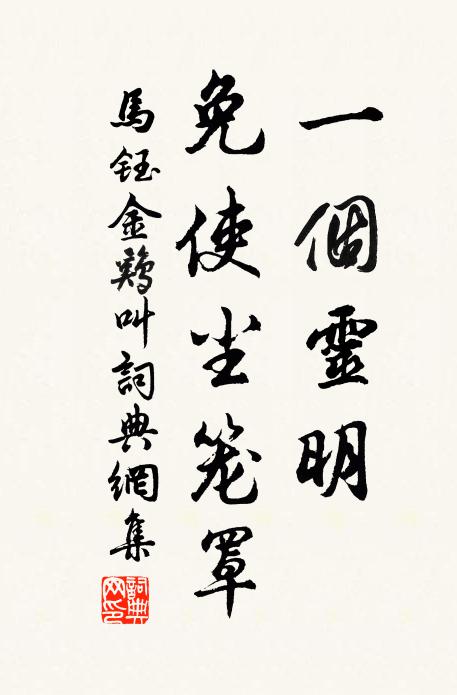 一個靈明
免使尘笼罩
馬鈺金鷄叫詞典網集
詞典
网印